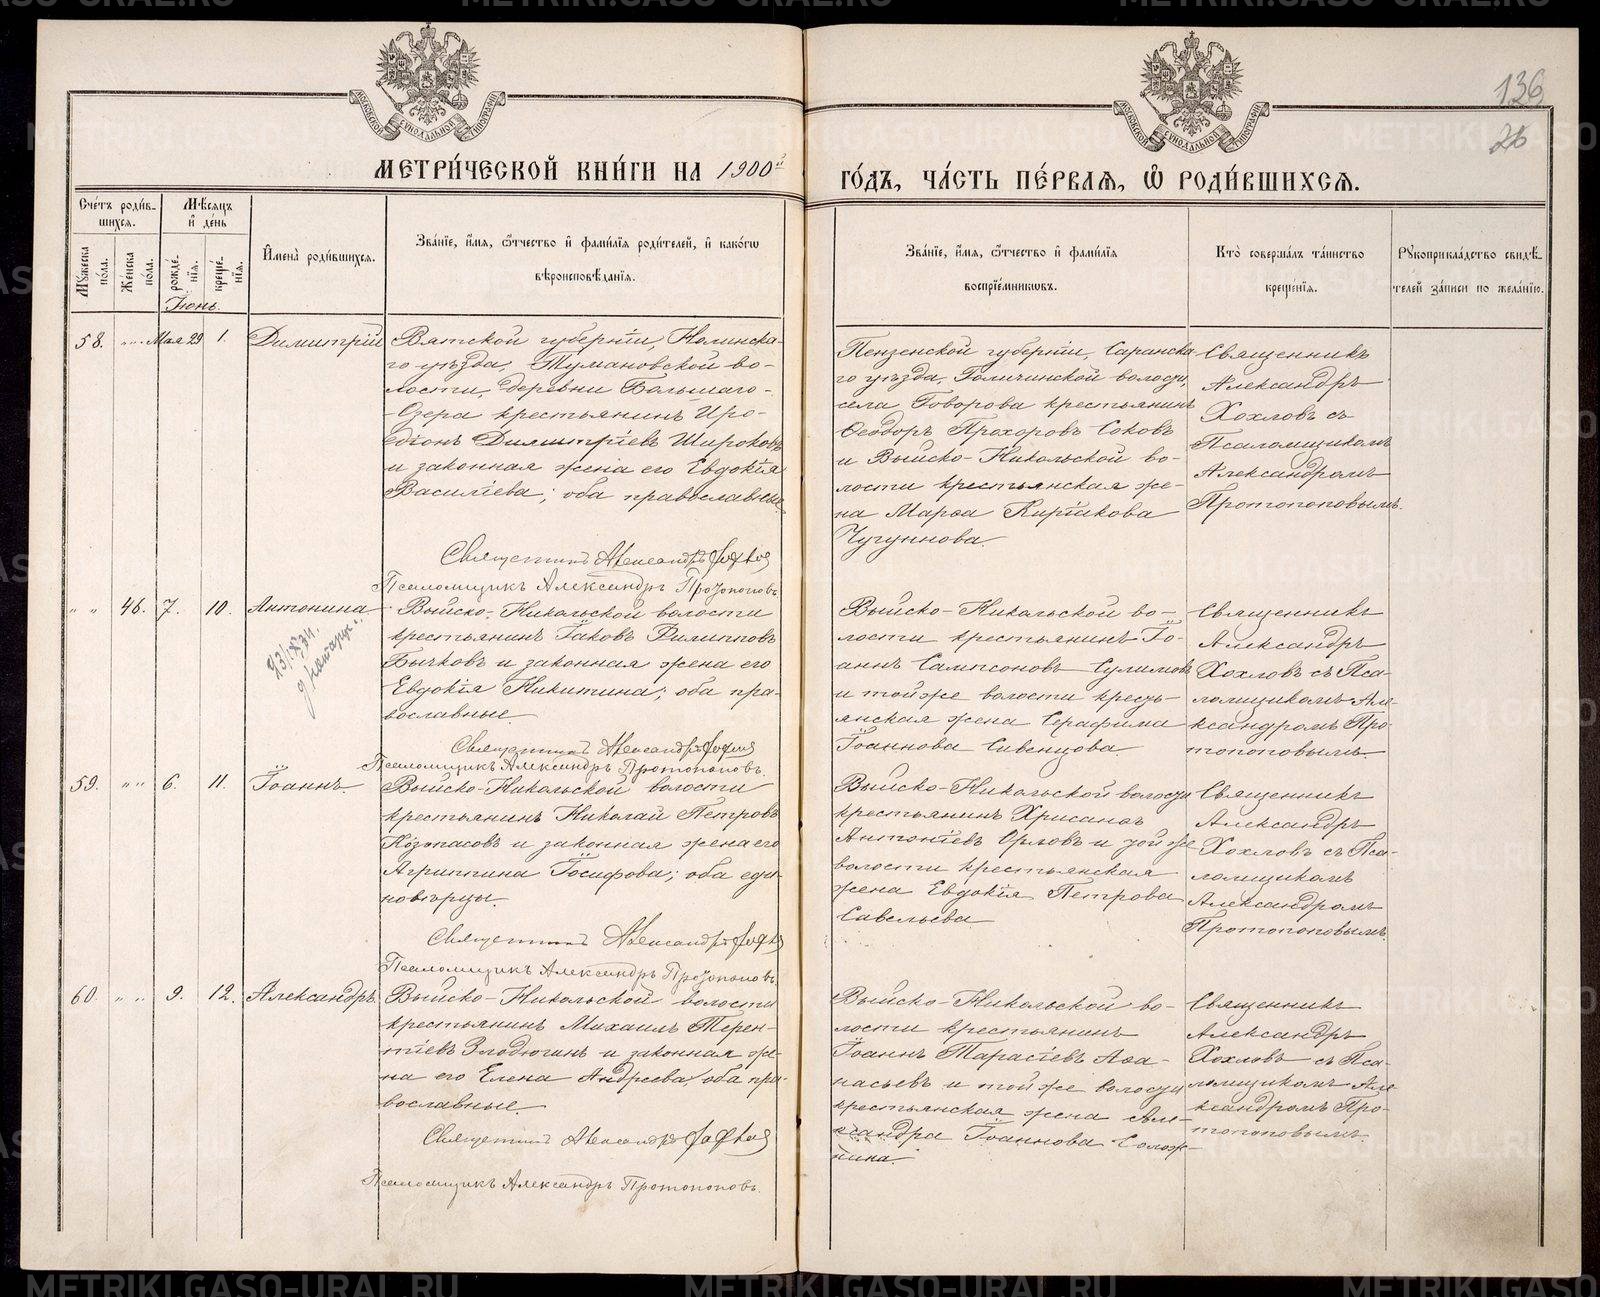 136
26
МОСКОВСКОЙ СУНОДАЛЬНОЙ ТИПОГРАФІИ
МОСКОВСКОЙ СУНОДАЛЬНОЙ ТИПОГРАФІИ
МЕТРИ́ЧЕСКОЙ КНИ́ГИ НА 1900й
ГО́ДЪ, ЧА́СТЬ ПЕ́РВАЯ, Ѽ РОДИ́ВШИХСЯ.
Сче́тъ роди́в-
шихся.
Мѣ́сяцъ
и҆ де́нь
Му́жеска по́ла.
Же́нска по́ла.
рожде́нїя.
креще́нїя.
И҆мена̀ роди́вшихся.
Зва́нїе, и҆́мя, ѻ҆́тчество и҆ фами́лїя роди́телей, и҆ како́гѡ
вѣроисповѣ́данїя.
Зва́нїе, и҆́мя, ѻ҆́тчество и҆ фами́лїя
воспрїе́мникѡвъ.
Кто̀ соверша́лъ та́инство
креще́нїя.
Рꙋкоприкла́дство свидѣ́-
телей за́писи по жела́нїю.
Іюнь.
58. " " Мая 29 1. Димитрій
Вятской губерніи, Нолинска-
го уѣзда, Тумановской во-
лости, деревни Большаго-
-Озера крестьянинъ Иро-
діонъ Димитріевъ Широковъ
и законная жена его Евдокія
Василіева; оба православные.
Священникъ Александръ Хохловъ
Псаломщикъ Александръ Протопоповъ
Пензенской губерніи, Саранска-
го уѣзда, Голичинской волости,
села Говорова крестьянинъ
Ѳеодоръ Прохоровъ Соковъ
и Выйско-Никольской во-
лости крестьянская же-
на Марѳа Кирикова
Чугуннова.
Священникъ
Александръ
Хохловъ съ
Псаломщикомъ
Александромъ
Протопоповымъ.
" " 46. 7. 10. Антонина
Выйско-Никольской волости
крестьянинъ Іаковъ Филипповъ
Бычковъ и законная жена его
Евдокія Никитина; оба пра-
вославные.
Священникъ Александръ Хохловъ
Псаломщикъ Александръ Протопоповъ.
Выйско-Никольской во-
лости крестьянинъ Іо-
аннъ Сампсоновъ Сулимовъ
и той же волости кресть-
янская жена Серафима
Іоаннова Сивенцова
Священникъ
Александръ
Хохловъ съ Пса-
ломщикомъ Але-
ксандромъ Про-
топоповымъ.
59. " " 6. 11. Іоаннъ.
Выйско-Никольской волости
крестьянинъ Николай Петровъ
Козопасовъ и законная жена его
Агриппина Іосифова; оба еди-
новѣрцы.
Священникъ Александръ Хохловъ
Псаломщикъ Александръ Протопоповъ.
Выйско-Никольской волости
крестьянинъ Хрисанѳъ
Антоніевъ Орловъ и той же
волости крестьянская
жена Евдокія Петрова
Савельева
Священникъ
Александръ
Хохловъ съ Пса-
ломщикомъ
Александромъ
Протопоповымъ.
60. " " 9. 12. Александръ.
Выйско-Никольской волости
крестьянинъ Михаилъ Терен-
тіевъ Злодюгинъ и законная же-
на его Елена Андреева; оба пра-
вославные.
Священникъ Александръ Хохловъ
Псаломщикъ Александръ Протопоповъ.
Выйско-Никольской во-
лости крестьянинъ
Іоаннъ Тарасіевъ Аѳа-
насьевъ и той же волости
крестьянская жена Але-
ксандра Іоаннова Солож-
нина.
Священникъ
Александръ
Хохловъ съ Пса-
ломщикомъ Але-
ксандромъ Про-
топоповымъ.
METRIKI.GASO-URAL.RU